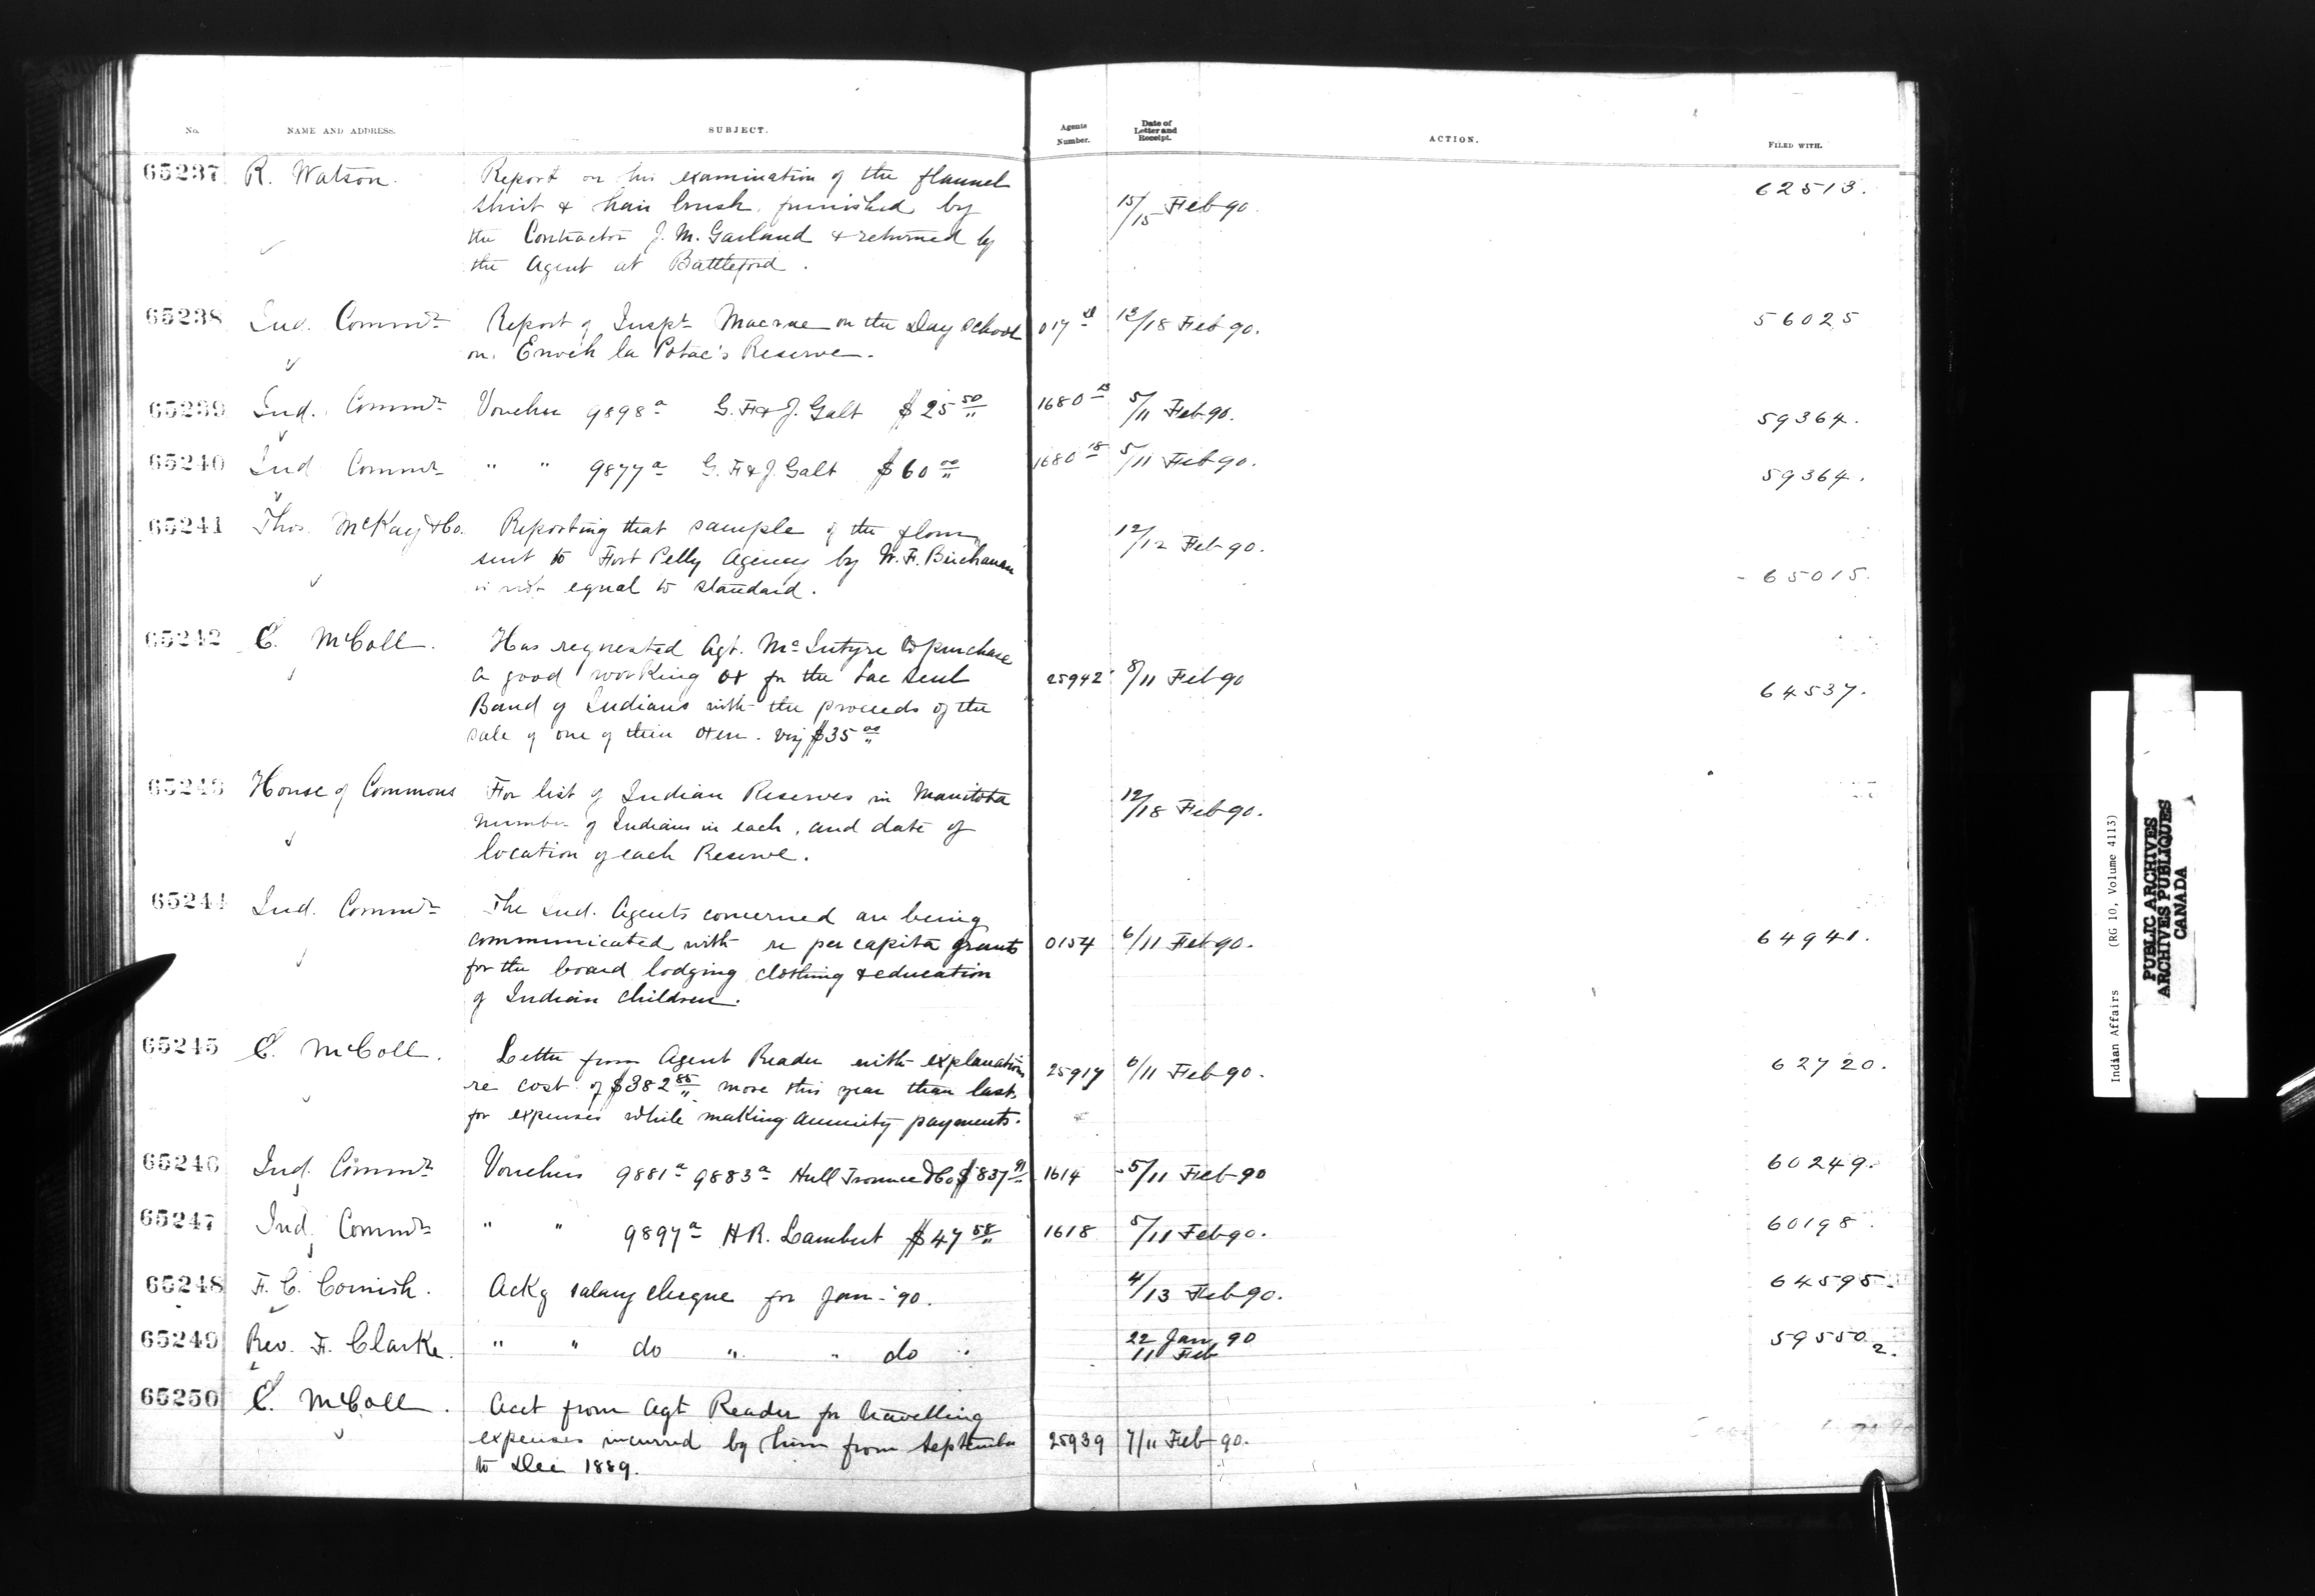 No. NAME AND ADDRESS. SUBJECT. Agents Number. Date of Letter and Receipt. ACTION. FILED WITH.
65237 R. Watson. Report on his examination of the flannel 62513.
shirt & hair brush furnished by 15/15 Feb 90.
the Contractor J. M. Garland & returned by
the Agent at Battleford.
65238 Ind. Commr Report of Inspt Macrae on the Day School 017 12/18 Feb 90. 56025
on Enoch la Potac's Reserve.
65239 Ind. Commr Voucher 9898a G. F. & J. Galt $25 50 1680 5/11 Feb 90. 59364.
65240 Ind Commr " " 9877a G. F. & J. Galt $60 00 1680 18 5/11 Feb 90. 59364.
65241 Thos. McKay & Co. Reporting that sample of the flour 12/12 Feb 90.
sent to Fort Pelly Agency by W. F. Buchanan
is not equal to standard. 65015.
65242 E. McColl. Has requested Agt. McIntyre to purchase
a good working ox for the Lac Seul 25942 8/11 Feb 90 64537.
Band of Indians with the proceeds of the
sale of one of their oxen. viz $35 00
65243 House of Commons For list of Indian Reserves in Manitoba 12/18 Feb 90.
number of Indians in each, and date of
location of each Reserve.
65244 Ind. Commr The Ind. Agents concerned are being
communicated with re per capita grants 0154 6/11 Feb 90. 64941.
for the board lodging clothing & education
of Indian children.
65245 E. McColl. Letter from Agent Reader with explanations 25917 6/11 Feb 90. 62720.
re cost of $382 85 more this year than last
for expenses while making annuity payments.
65246 Ind. Commr Vouchers 9881a 9883a Hull Trounce & Co $837 91 1614 5/11 Feb 90 60249.
65247 Ind. Commr " " 9897a H R. Lambert $47 58 1618 5/11 Feb 90. 60198.
65248 F. C. Cornish. Ackg salary cheque for Jan - '90. 4/13 Feb 90. 64595
65249 Rev. F. Clarke. " " do " " do " 22 Jan 90 59550 2.
11 Feb
65250 E. McColl. Acct from Agt Reader for travelling
expenses incurred by him from September 25939 7/11 Feb 90.
to Dec 1889.
Indian Affairs (RG 10, Volume 4113)
PUBLIC ARCHIVES
ARCHIVES PUBLIQUES
CANADA